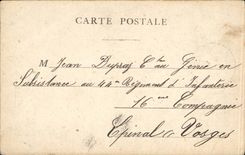 CARTE POSTALE
M Jean Dupraz C au Génie en
Subsistance au 44me Régiment d'Infanterie
16me Compagnie
Epinal Vosges